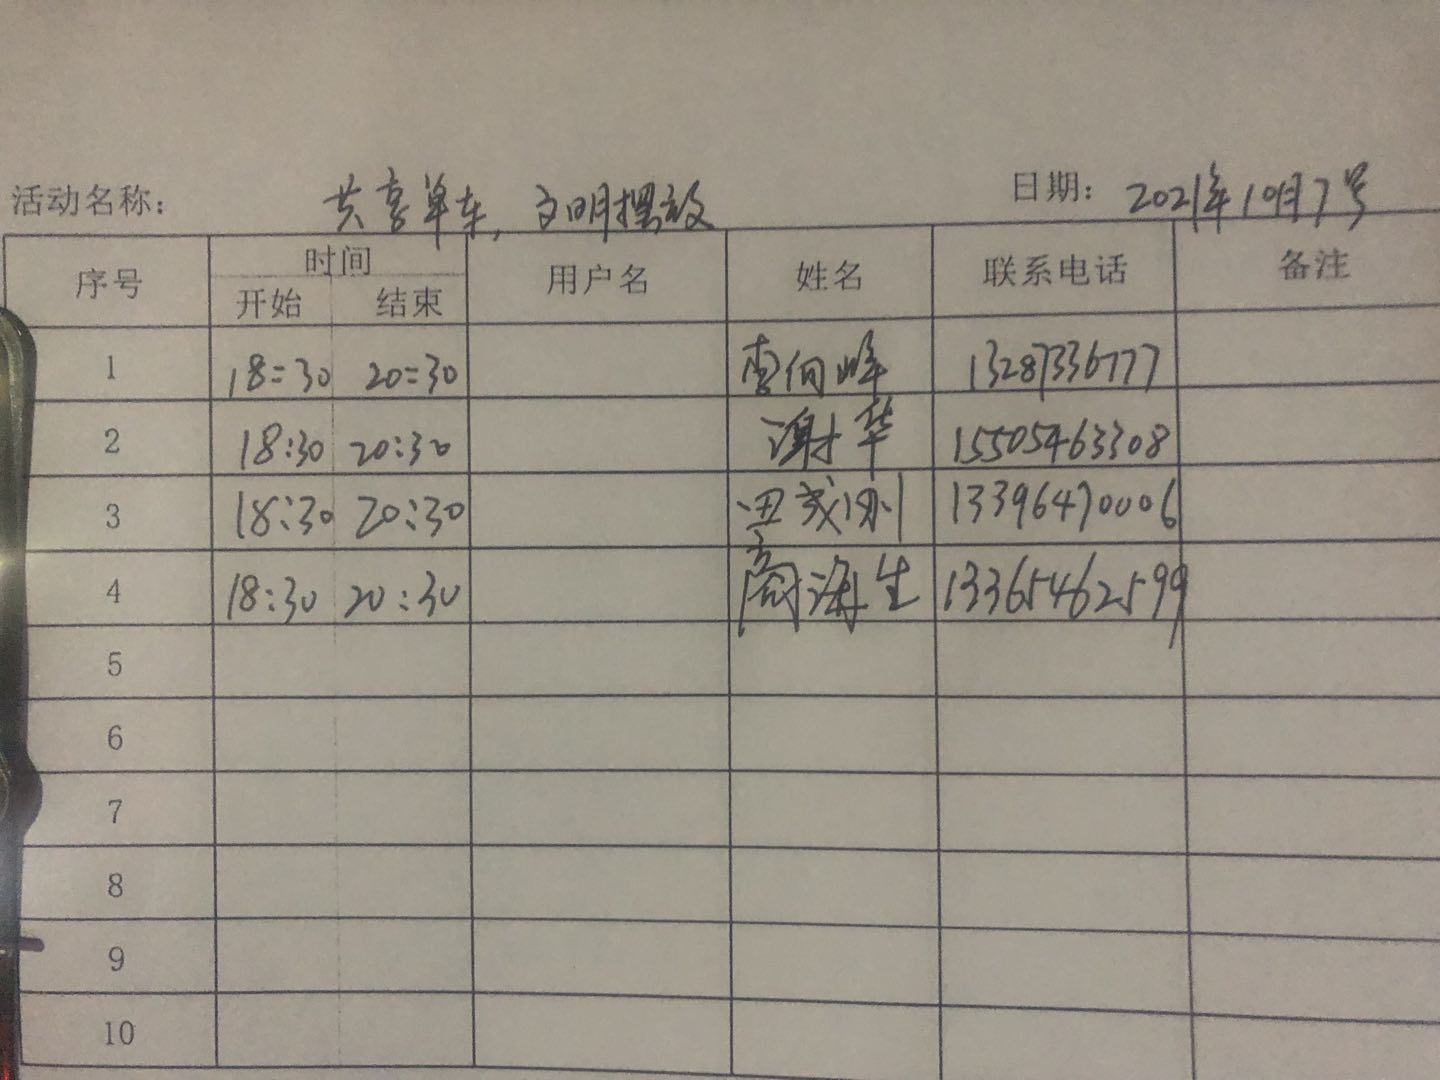 活动名称： 共享单车，文明摆放 日期： 2021年10月7号
序号 时间 用户名 姓名 联系电话 备注
开始 结束
1 18:30 20:30 李向峰 13287336777
2 18:30 20:30 谢华 15505463308
3 18:30 20:30 13396470006
4 18:30 20:30 商海生 13365462599
5
6
7
8
9
10